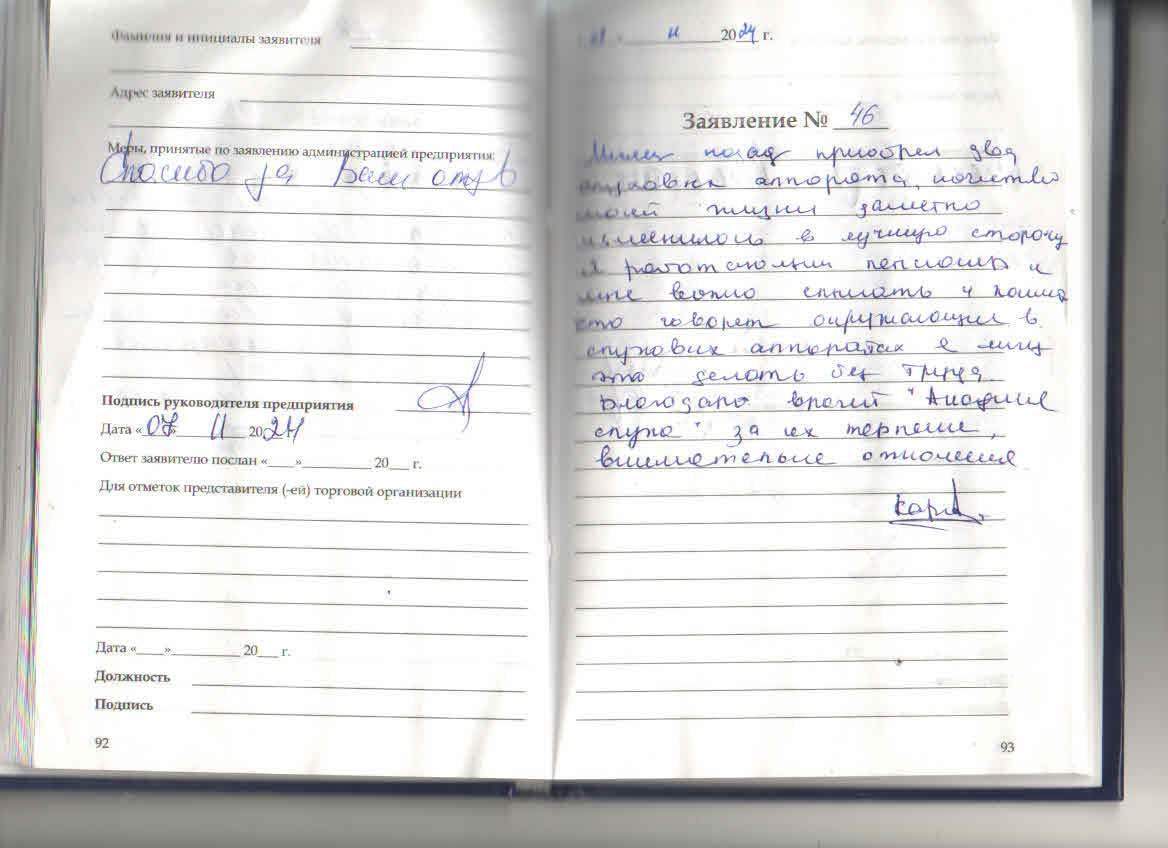 Фамилия и инициалы заявителя
Адрес заявителя
Меры, принятые по заявлению администрацией предприятия:
Спасибо за Ваш отзыв
Подпись руководителя предприятия
Дата «07» 11 2024
Ответ заявителю послан «___»__________ 20___ г.
Для отметок представителя (-ей) торговой организации
Дата «____»__________ 20___ г.
Должность
Подпись
92
11 2024 г.
Заявление № 46
Месяц назад приобрел два
слуховых аппарата, качество
моей жизни заметно
изменилось в лучшую сторону
Я работающий пенсионер и
мне важно слышать и понимать
что говорят окружающие в
слуховых аппаратах я могу
это делать без труда
Благодарю врачей "Академия
слуха" за их терпение,
внимательные отношения
93